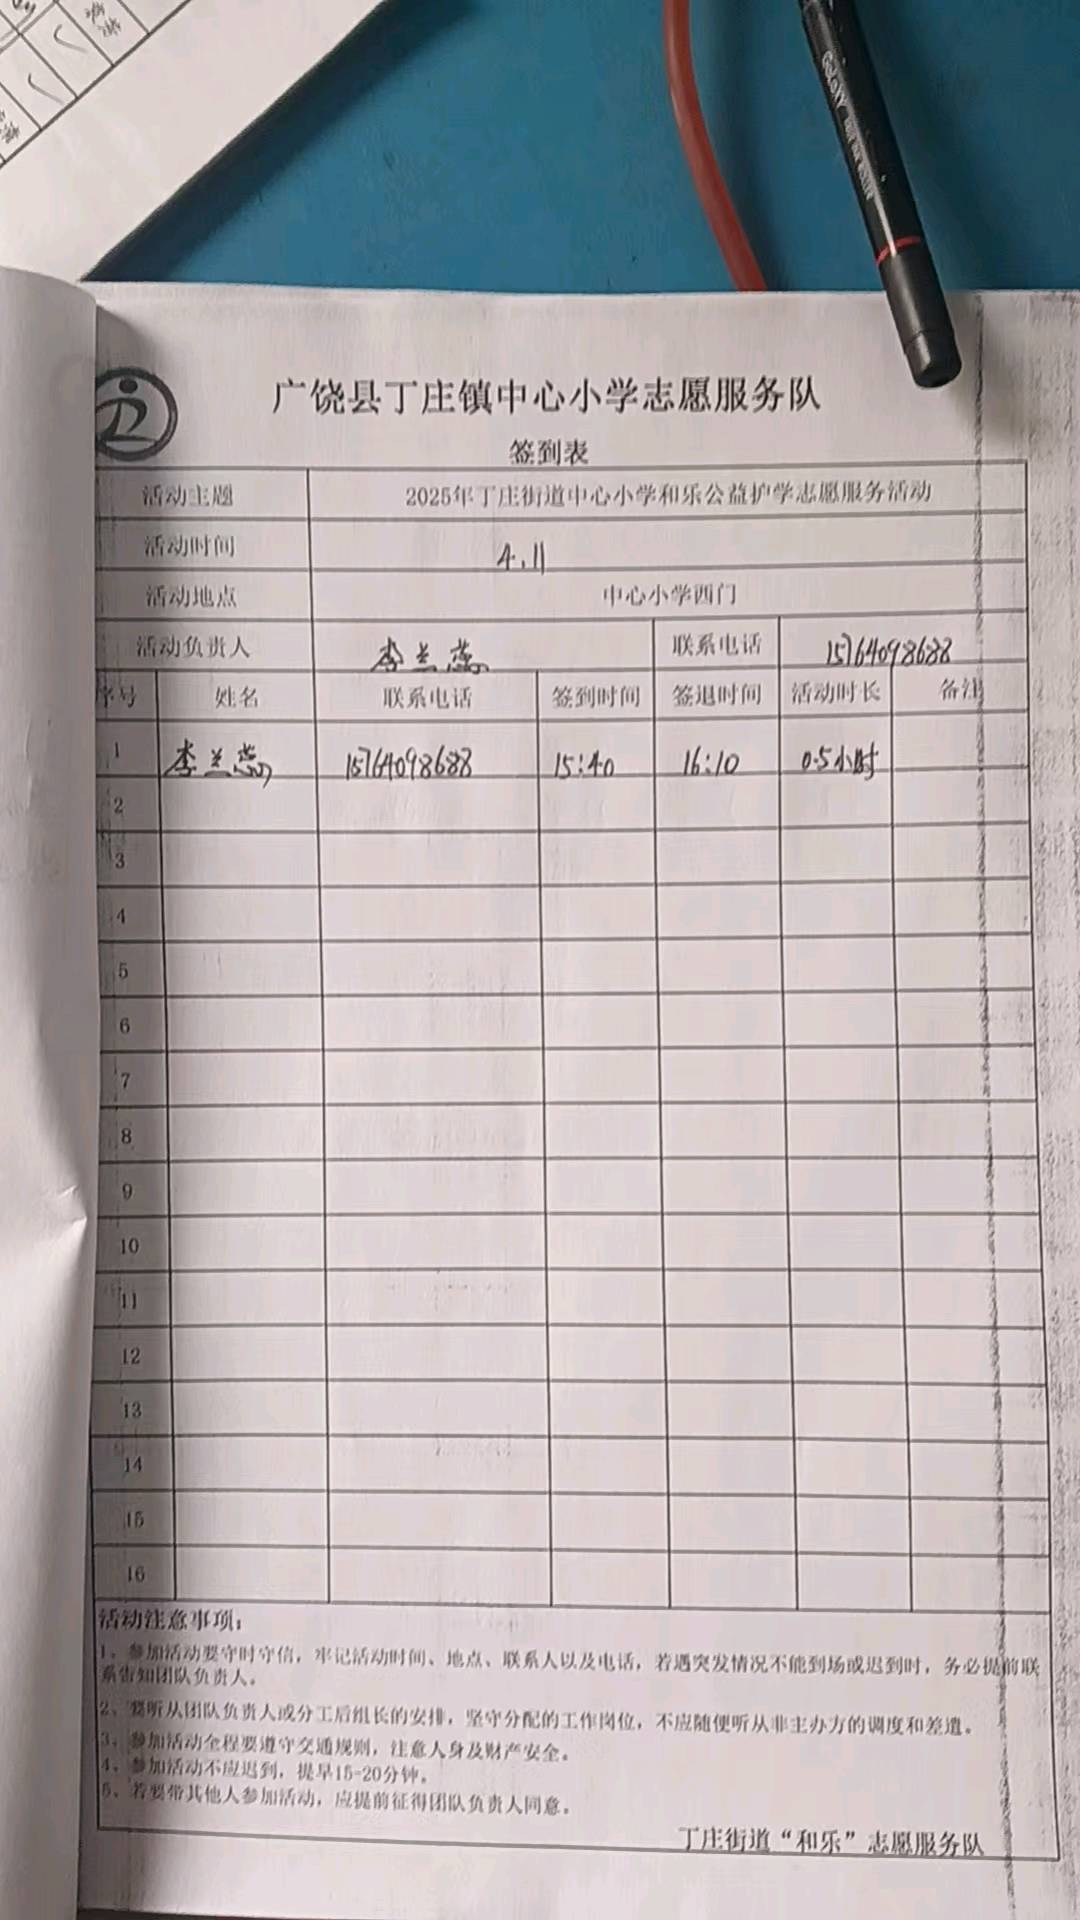 广饶县丁庄镇中心小学志愿服务队
签到表
活动主题 2025年丁庄街道中心小学和乐公益护学志愿服务活动
活动时间 4.11
活动地点 中心小学西门
活动负责人 李兰蕊 联系电话 15764098688
序号 姓名 联系电话 签到时间 签退时间 活动时长 备注
1 李兰蕊 15764098688 15:40 16:10 0.5小时
2
3
4
5
6
7
8
9
10
11
12
13
14
15
16
活动注意事项：
1、参加活动要守时守信，牢记活动时间、地点、联系人以及电话，若遇突发情况不能到场或迟到时，务必提前联
系告知团队负责人。
2、要听从团队负责人或分工后组长的安排，坚守分配的工作岗位，不应随便听从非主办方的调度和差遣。
3、参加活动全程要遵守交通规则，注意人身及财产安全。
4、参加活动不应迟到，提早15-20分钟。
5、若要带其他人参加活动，应提前征得团队负责人同意。
丁庄街道“和乐”志愿服务队